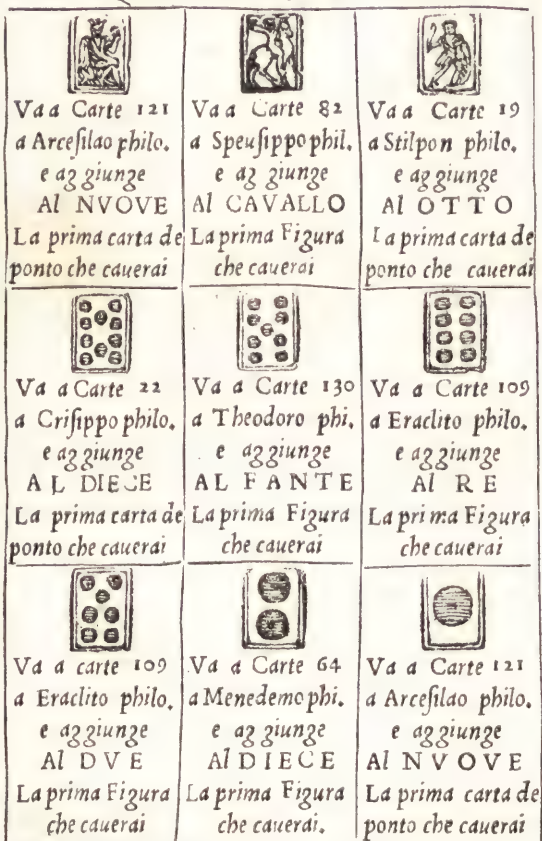 Va a Carte 121
a Arceſilao philo.
e ag giunge
Al NVOVE
La prima carta de
ponto che cauerai
Va a Carte 82
a Speuſippo phil.
e ag giunge
Al CAVALLO
La prima Figura
che cauerai
Va a Carte 19
a Stilpon philo.
e aggiunge
Al OTTO
La prima carta de
ponto che cauerai
Va a Carte 22
a Criſippo philo.
e ag giunge
AL DIECE
La prima carta de
ponto che cauerai
Va a Carte 130
a Theodoro phi.
e aggiunge
AL FANTE
La prima Figura
che cauerai
Va a Carte 109
a Eraclito philo.
e aggiunge
Al RE
La prima Figura
che cauerai
Va a carte 109
a Eraclito philo.
e ag giunge
Al DVE
La prima Figura
che cauerai
Va a Carte 64
a Menedemo phi.
e ag giunge
Al DIECE
La prima Figura
che cauerai.
Va a Carte 121
a Arceſilao philo.
e aggiunge
Al NVOVE
La prima carta de
ponto che cauerai